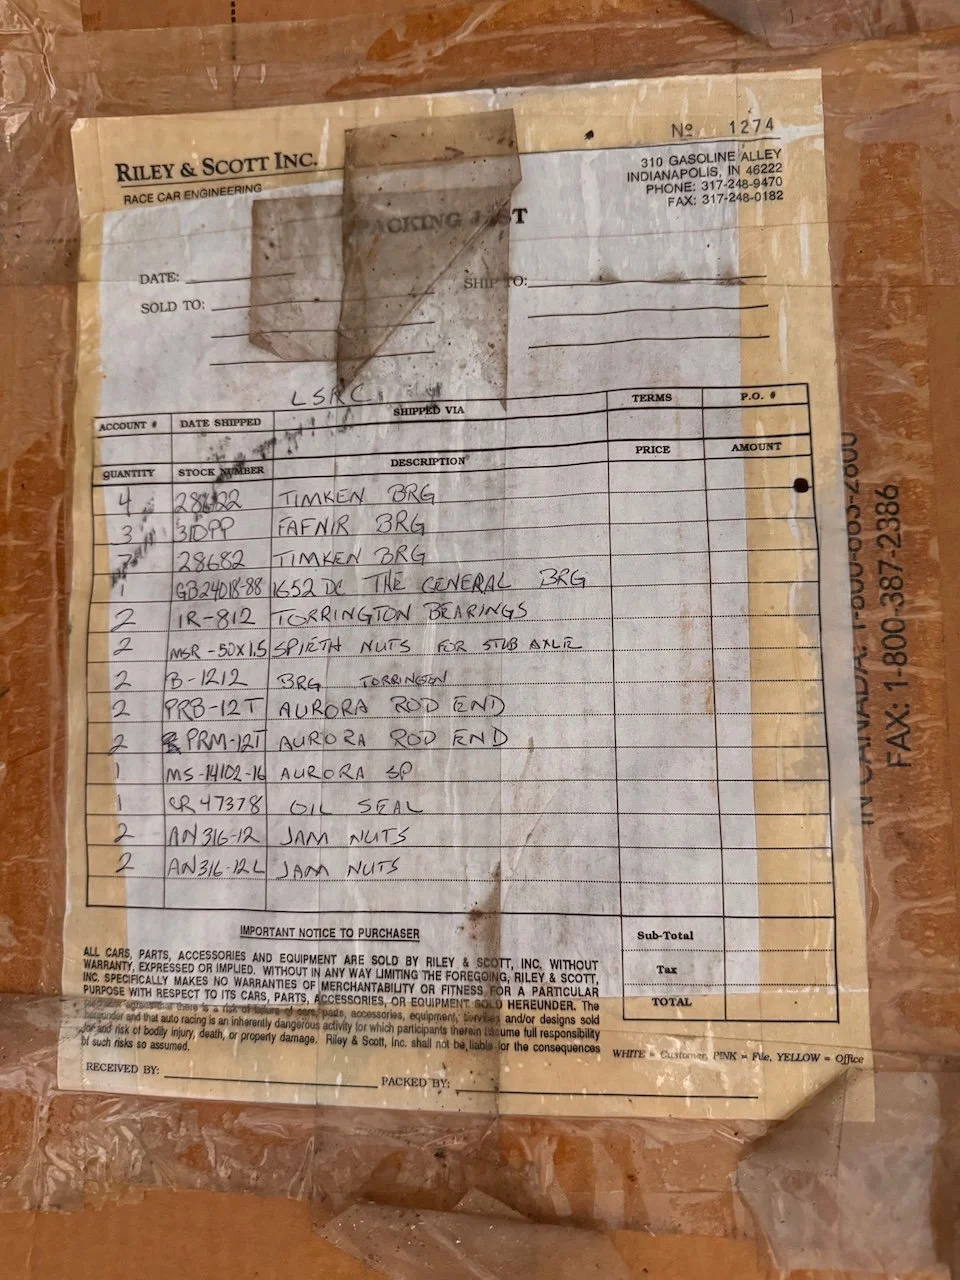 Nº 1274
RILEY & SCOTT INC.
RACE CAR ENGINEERING
310 GASOLINE ALLEY
INDIANAPOLIS, IN 46222
PHONE: 317-248-9470
FAX: 317-248-0182
PACKING LIST
DATE:
SHIP TO:
SOLD TO:
LSRC
ACCOUNT # DATE SHIPPED SHIPPED VIA TERMS P.O. #
QUANTITY STOCK NUMBER DESCRIPTION PRICE AMOUNT
4 28622 TIMKEN BRG
3 310PP FAFNIR BRG
28682 TIMKEN BRG
1 GB24018-88 1652 DC THE GENERAL BRG
2 IR-812 TORRINGTON BEARINGS
2 MSR-50X1.5 SPIETH NUTS FOR STUB AXLE
2 B-1212 BRG TORRINGTON
2 PRB-12T AURORA ROD END
2 PRM-12T AURORA ROD END
1 MS-14102-16 AURORA SP
1 CR 47378 OIL SEAL
2 AN316-12 JAM NUTS
2 AN316-12L JAM NUTS
IMPORTANT NOTICE TO PURCHASER
ALL CARS, PARTS, ACCESSORIES AND EQUIPMENT ARE SOLD BY RILEY & SCOTT, INC. WITHOUT
WARRANTY, EXPRESSED OR IMPLIED. WITHOUT IN ANY WAY LIMITING THE FOREGOING, RILEY & SCOTT,
INC. SPECIFICALLY MAKES NO WARRANTIES OF MERCHANTABILITY OR FITNESS FOR A PARTICULAR
PURPOSE WITH RESPECT TO ITS CARS, PARTS, ACCESSORIES, OR EQUIPMENT SOLD HEREUNDER. The
agrees that there is a risk of failure of cars, parts, accessories, equipment, services and/or designs sold
hereunder and that auto racing is an inherently dangerous activity for which participants therein assume full responsibility
for and risk of bodily injury, death, or property damage. Riley & Scott, Inc. shall not be liable for the consequences
of such risks so assumed.
Sub-Total
Tax
TOTAL
WHITE = Customer, PINK = File, YELLOW = Office
RECEIVED BY: PACKED BY:
IN CANADA: 1-800-663-2800
FAX: 1-800-387-2386